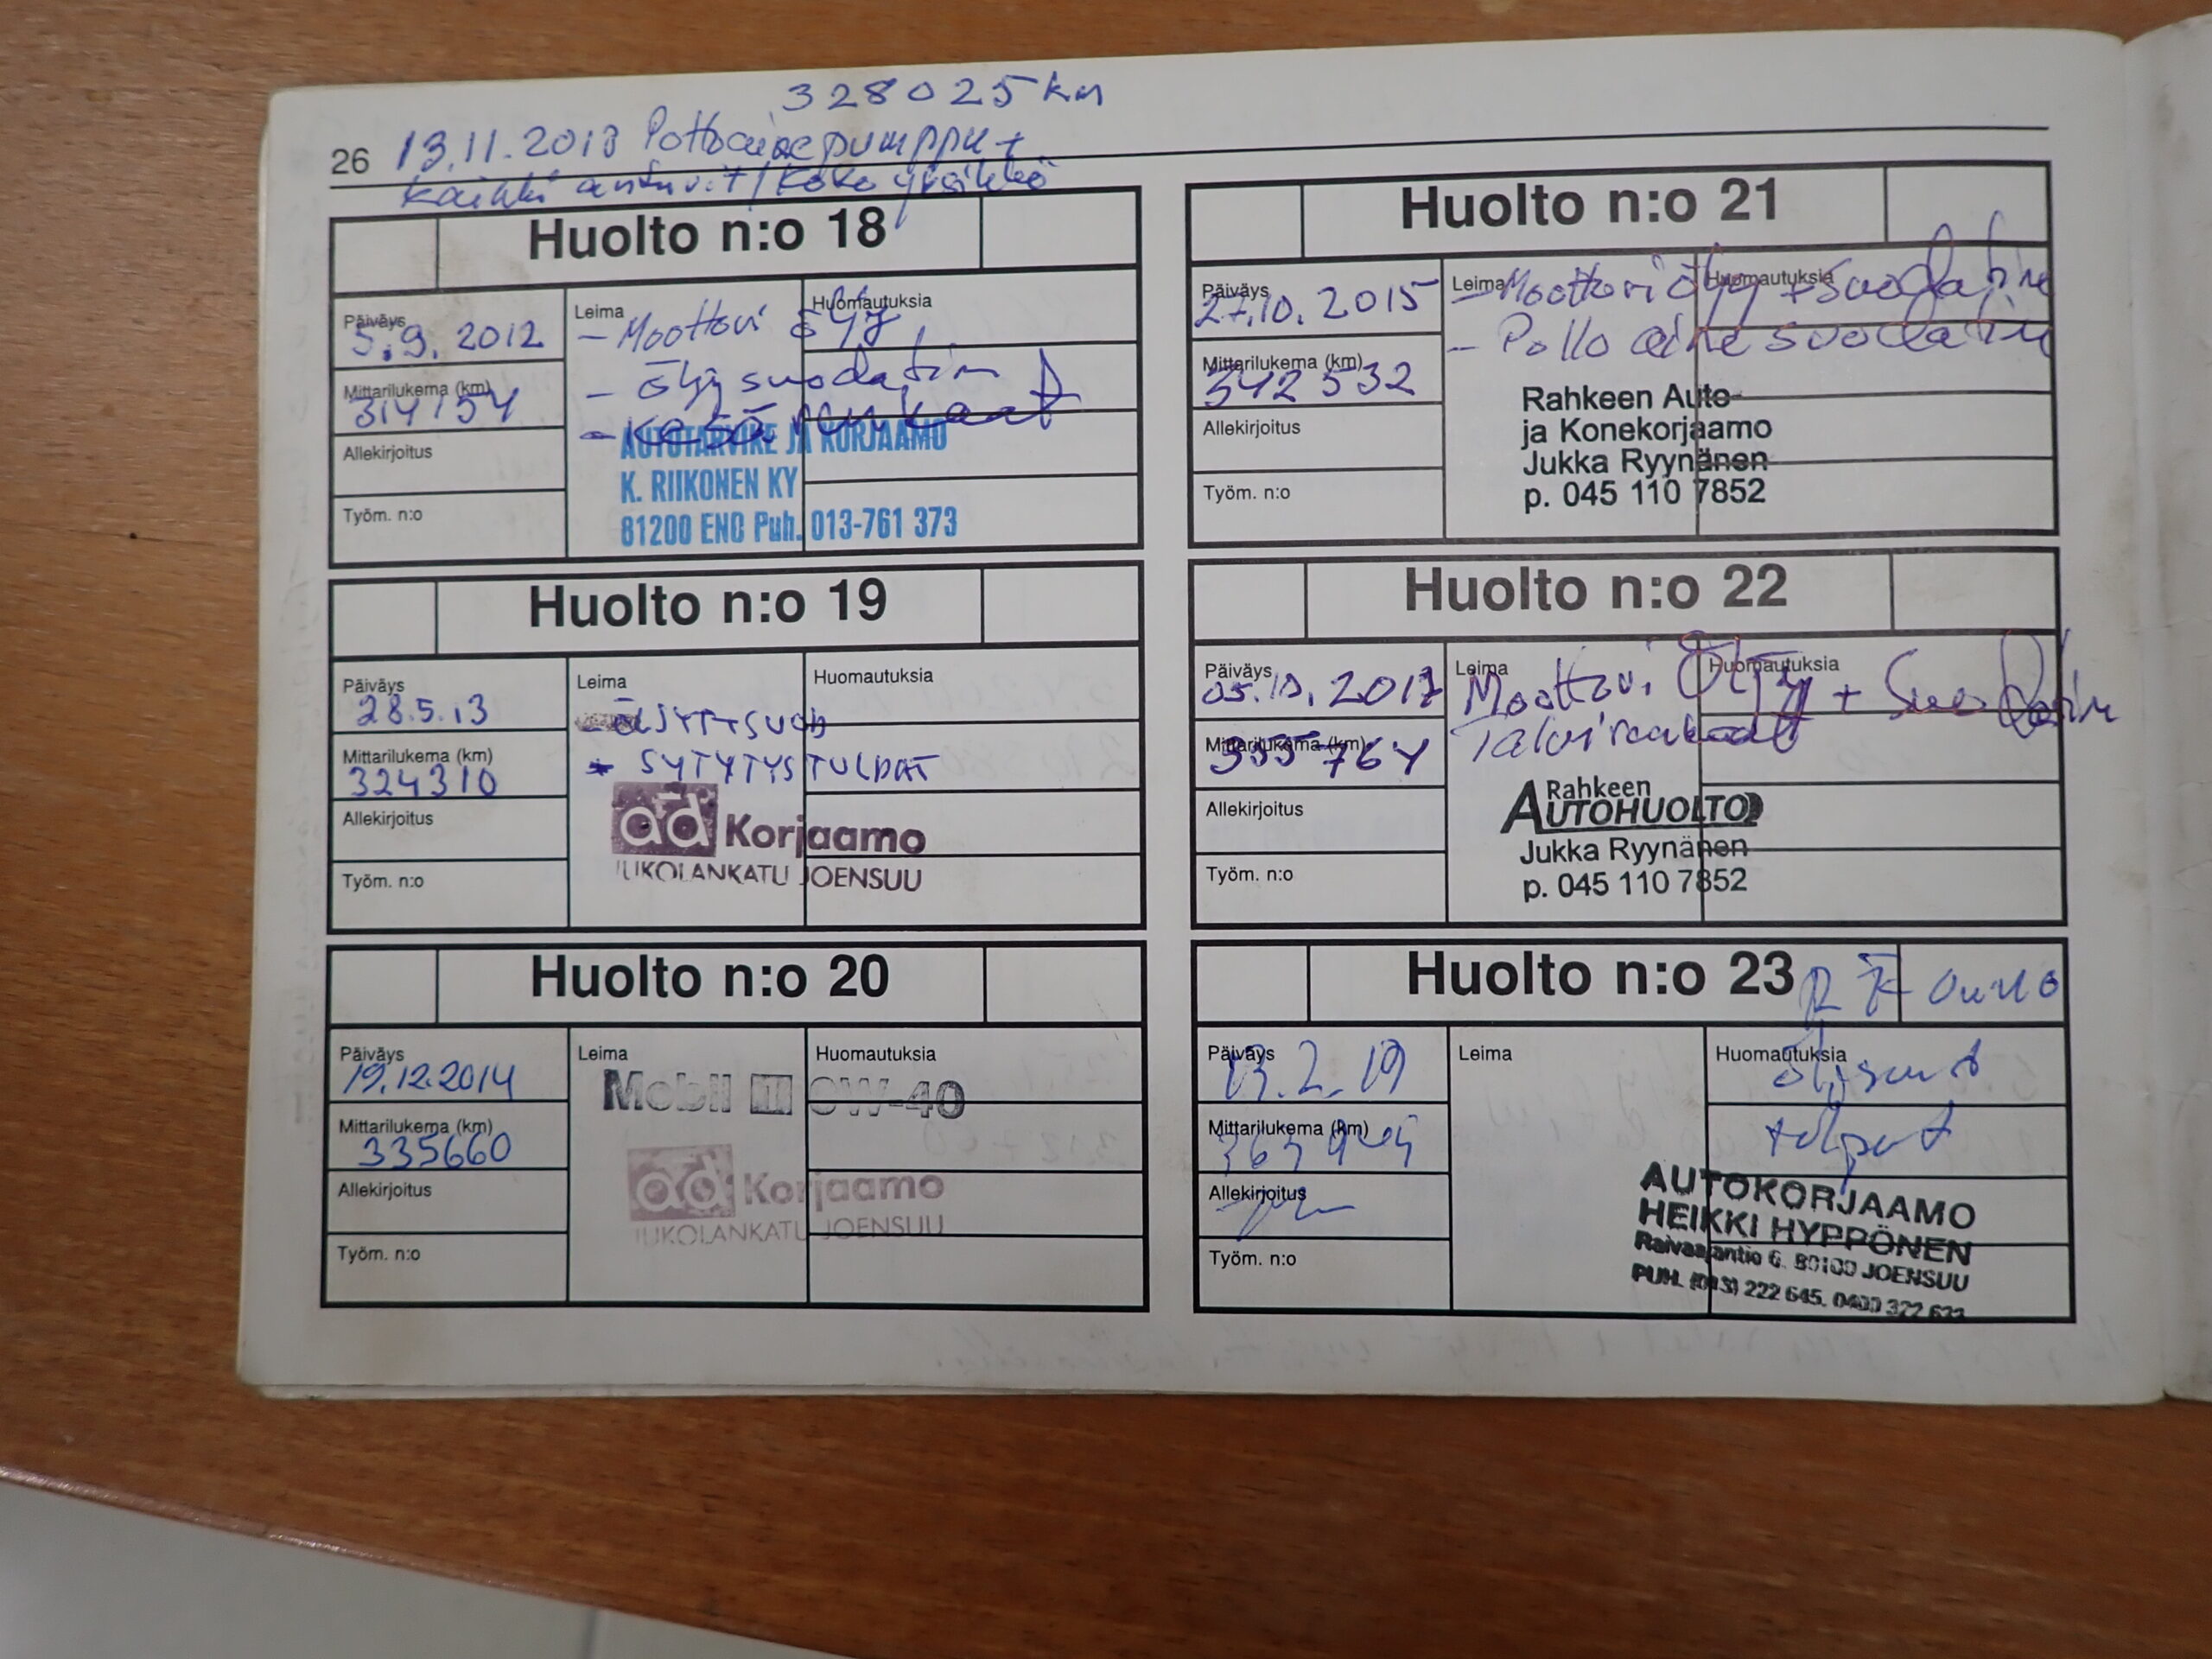 328025 km
26 13.11.2013 Polttoainepumppu +
kaikki anturit / koko yksikkö
Huolto n:o 18
Päiväys
5.9.2012
Mittarilukema (km)
314154
Allekirjoitus
Työm. n:o
Leima
Huomautuksia
- Moottori öljy
- öljysuodatin
- Kesärenkaat
AUTOTARVIKE JA KORJAAMO
K. RIIKONEN KY
81200 ENO Puh. 013-761 373
Huolto n:o 19
Päiväys
28.5.13
Mittarilukema (km)
324310
Allekirjoitus
Työm. n:o
Leima
Huomautuksia
ÖLJYT+SUOD
SYTYTYSTULPAT
ad Korjaamo
JUKOLANKATU JOENSUU
Huolto n:o 20
Päiväys
19.12.2014
Mittarilukema (km)
335660
Allekirjoitus
Työm. n:o
Leima
Huomautuksia
Mobil 1 0W-40
ad Korjaamo
JUKOLANKATU JOENSUU
Huolto n:o 21
Päiväys
27.10.2015
Mittarilukema (km)
342532
Allekirjoitus
Työm. n:o
Leima
Huomautuksia
- Moottoriöljy + suodatin
- Polloainesuodatin
Rahkeen Auto-
ja Konekorjaamo
Jukka Ryynänen
p. 045 110 7852
Huolto n:o 22
Päiväys
05.10.2017
Mittarilukema (km)
355764
Allekirjoitus
Työm. n:o
Leima
Huomautuksia
Moottori Öljy + Suodatin
Talvirenkaat
Rahkeen
AUTOHUOLTO
Jukka Ryynänen
p. 045 110 7852
Huolto n:o 23
Päiväys
13.2.19
Mittarilukema (km)
Allekirjoitus
Työm. n:o
Leima
Huomautuksia
tulpat
AUTOKORJAAMO
HEIKKI HYPPÖNEN
Raivaajantie 6. 80100 JOENSUU
PUH. (013) 222 645, 0400 322 633